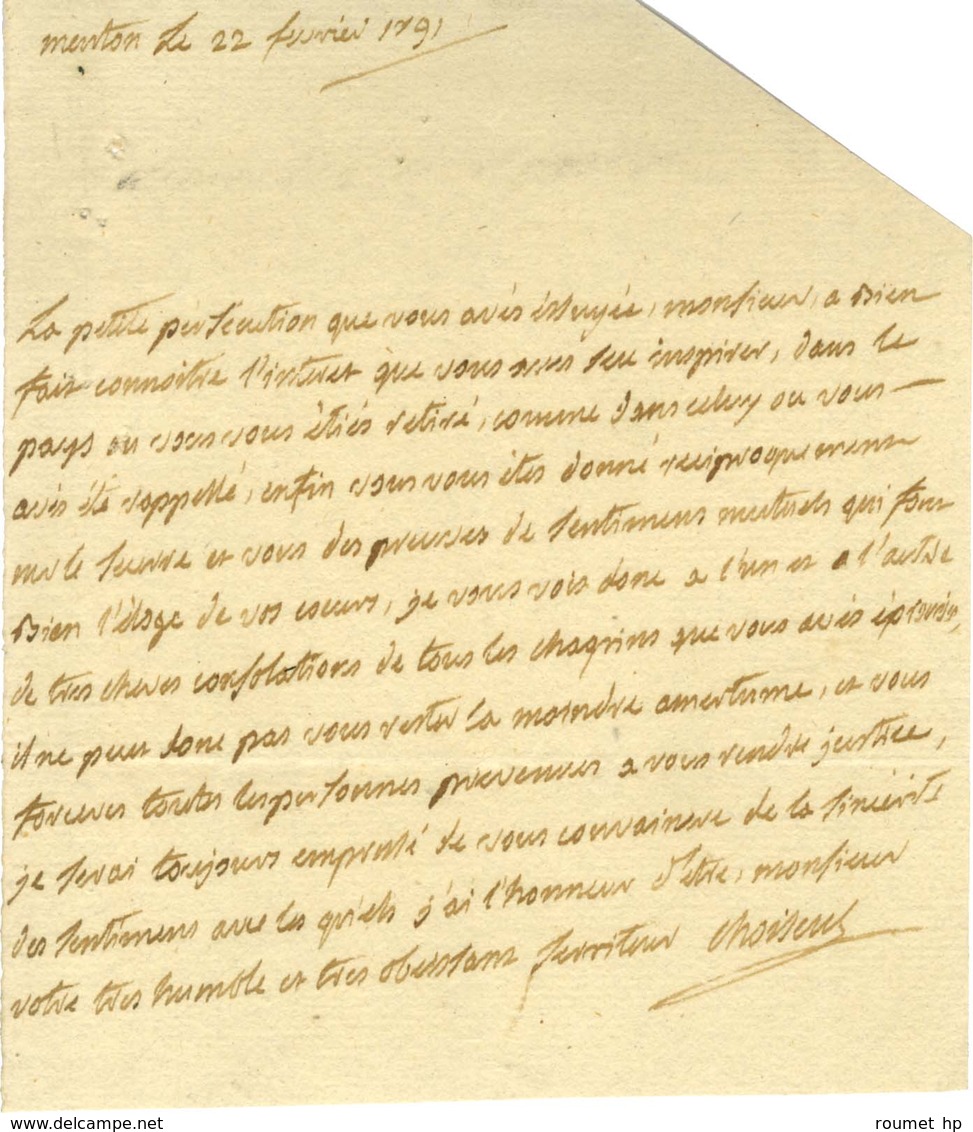 menton le 22 fevrier 1791
La petite persecution que vous avés éssuyée, monsieur, a Bien
fait connoitre l'interet que vous aves seu inspirer, dans le
pays ou vous vous étiés retiré, comme dans celuy ou vous
avés été rappellé, enfin vous vous étes donné reciproquement
et vous des preuves de sentimens mutuels qui font
Bien l'éloge de vos coeurs, je vous vois donc a l'un et a l'autre
de tres cheres consolations de tous les chagrins que vous avés éprouvés,
il ne peut donc pas vous rester la moindre amertume, et vous
forceres toutes les personnes prevenues a vous rendre justice,
je serai toujours empressé de vous convaincre de la sincérité
des sentimens avec les quels j'ai l'honneur d'etre, monsieur
votre tres humble et tres obeissant serviteur Choiseul
www.delcampe.net
roumet hp